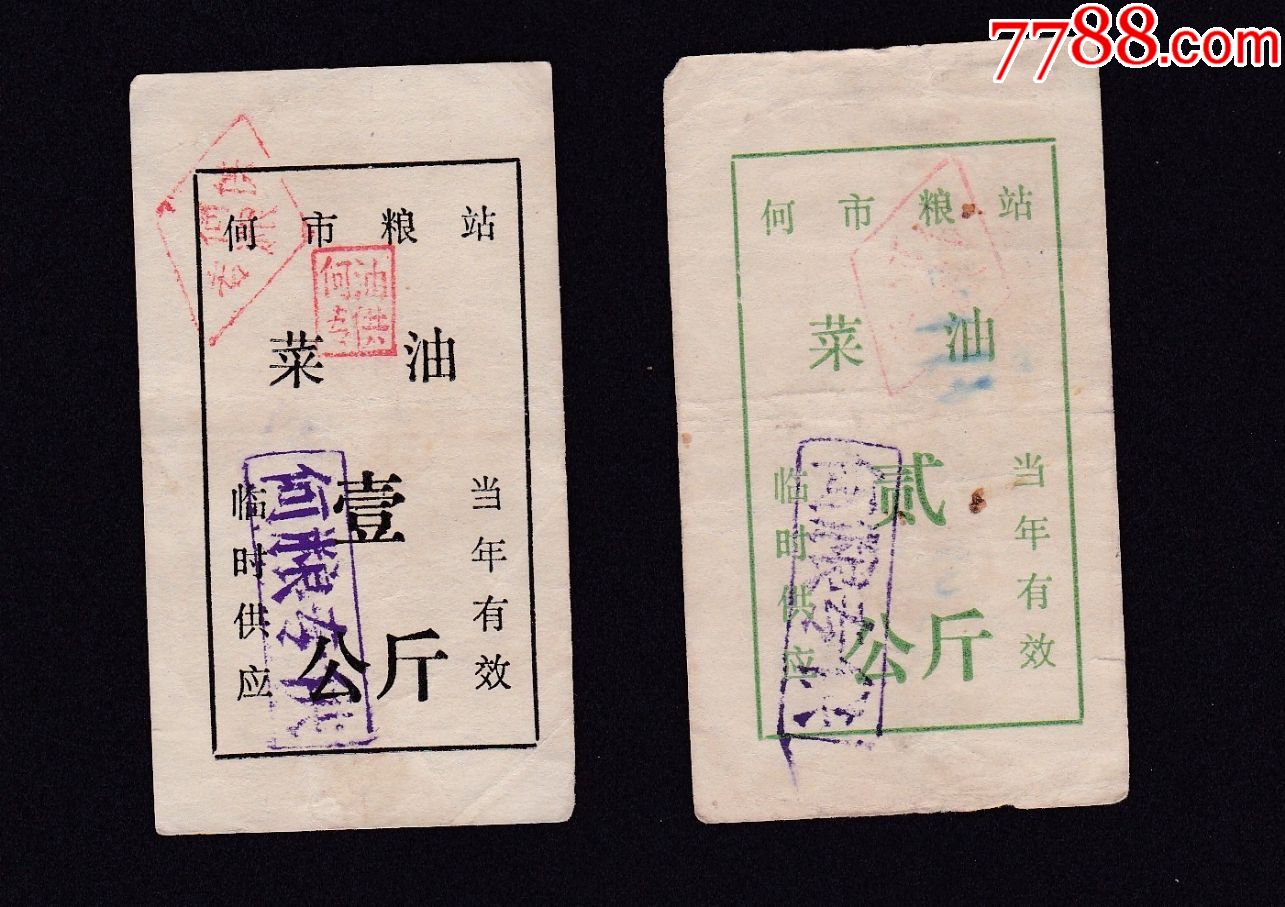 7788.com
何市粮站
油供
何专
菜油
壹
公斤
当年有效
临时供应
何市粮站
菜油
贰
公斤
当年有效
临时供应